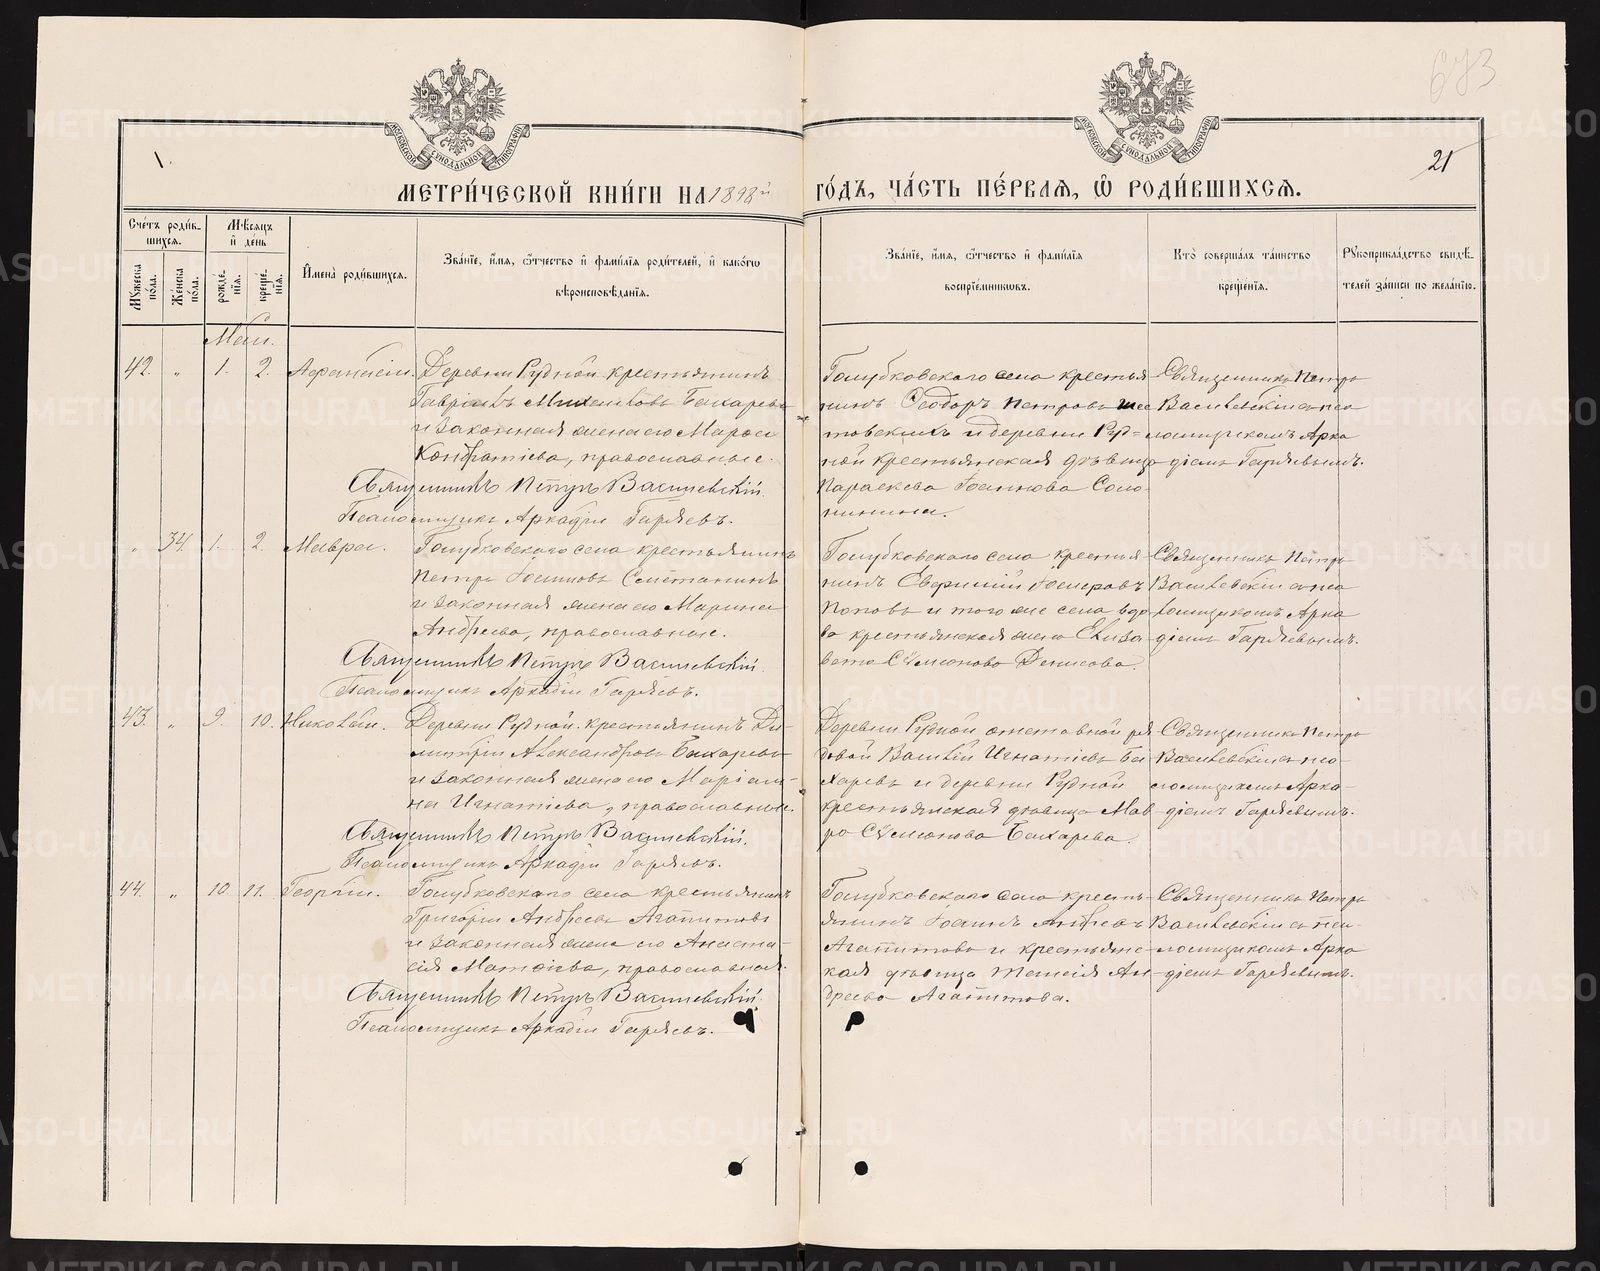 673
21
1.
МОСКОВСКОЙ СѴНОДАЛЬНОЙ ТИПОГРАФІИ
МОСКОВСКОЙ СѴНОДАЛЬНОЙ ТИПОГРАФІИ
МЕТРИ́ЧЕСКОЙ КНИ́ГИ НА 1898й ГО́ДЪ, ЧА́СТЬ ПЕ́РВАЯ, Ѡ РОДИ́ВШИХСЯ.
Сче́тъ роди́вшихся.
Мꙋ́жеска по́ла.
Же́нска по́ла.
Мѣ́сяцъ и де́нь
рожде́нїя.
креще́нїя.
Имена̀ роди́вшихся.
Зва́нїе, и́мя, ѻ́тчество и фами́лїя роди́телей, и како́гѡ
вѣроисповѣ́данїя.
Зва́нїе, и́мя, ѻ́тчество и фами́лїя
воспрїе́мникѡвъ.
Кто̀ соверша́лъ та́инство
креще́нїя.
Рꙋкоприкла́дство свидѣ́-
телей за́писи по жела́нїю.
Май.
42. " 1. 2. Афанасій. Деревни Рудной крестьянинъ
Гавріилъ Михеиловъ Бахаревъ
и законная жена его Марѳа
Кондратіева, православные.
Священникъ Петръ Василевскій.
Псаломщикъ Аркадій Гаряевъ.
Голубковскаго села крестья-
нинъ Ѳеодоръ Петровъ Шес
товскихъ и деревни Руд-
ной крестьянская дѣвица
Параскева Іоаннова Соло-
нинина.
Священникъ Петръ
Василевскій съ пса
ломщикомъ Арка
діемъ Гаряевымъ.
" 34. 1. 2. Мавра. Голубковскаго села крестьянинъ
Петръ Іоанновъ Сметанинъ
и законная жена его Марина
Андреева, православные.
Священникъ Петръ Василевскій.
Псаломщикъ Аркадій Гаряевъ.
Голубковскаго села крестья
нинъ Евфимій
Поповъ и того же села вдо
ва крестьянская жена Елиза
вета Сѵмеонова Денисова.
Священникъ Петръ
Василевскій съ пса
ломщикомъ Арка
діемъ Гаряевымъ.
43. " 9. 10. Николай. Деревни Рудной крестьянинъ Ди-
митрій Александровъ Бахаревъ
и законная жена его Маріам-
на Игнатіева, православные.
Священникъ Петръ Василевскій.
Псаломщикъ Аркадій Гаряевъ.
Деревни Рудной отставной ря
довой Василій Игнатіевъ Ба
харевъ и деревни Рудной
крестьянская дѣвица Мав
ра Сѵмеонова Бахарева.
Священникъ Петръ
Василевскій съ пса-
ломщикомъ Арка-
діемъ Гаряевымъ.
44. " 10 11. Георгій. Голубковскаго села крестьянинъ
Григорій Андреевъ Агапитовъ
и законная жена его Анаста-
сія Матѳіева, православные.
Священникъ Петръ Василевскій.
Псаломщикъ Аркадій Гаряевъ.
Голубковскаго села кресть-
янинъ Іоаннъ Андреевъ
Агапитовъ и крестьянс-
кая дѣвица Таисія Ан-
дреева Агапитова.
Священникъ Петръ
Василевскій съ пса-
ломщикомъ Арка
діемъ Гаряевымъ.
METRIKI.GASO-URAL.RU